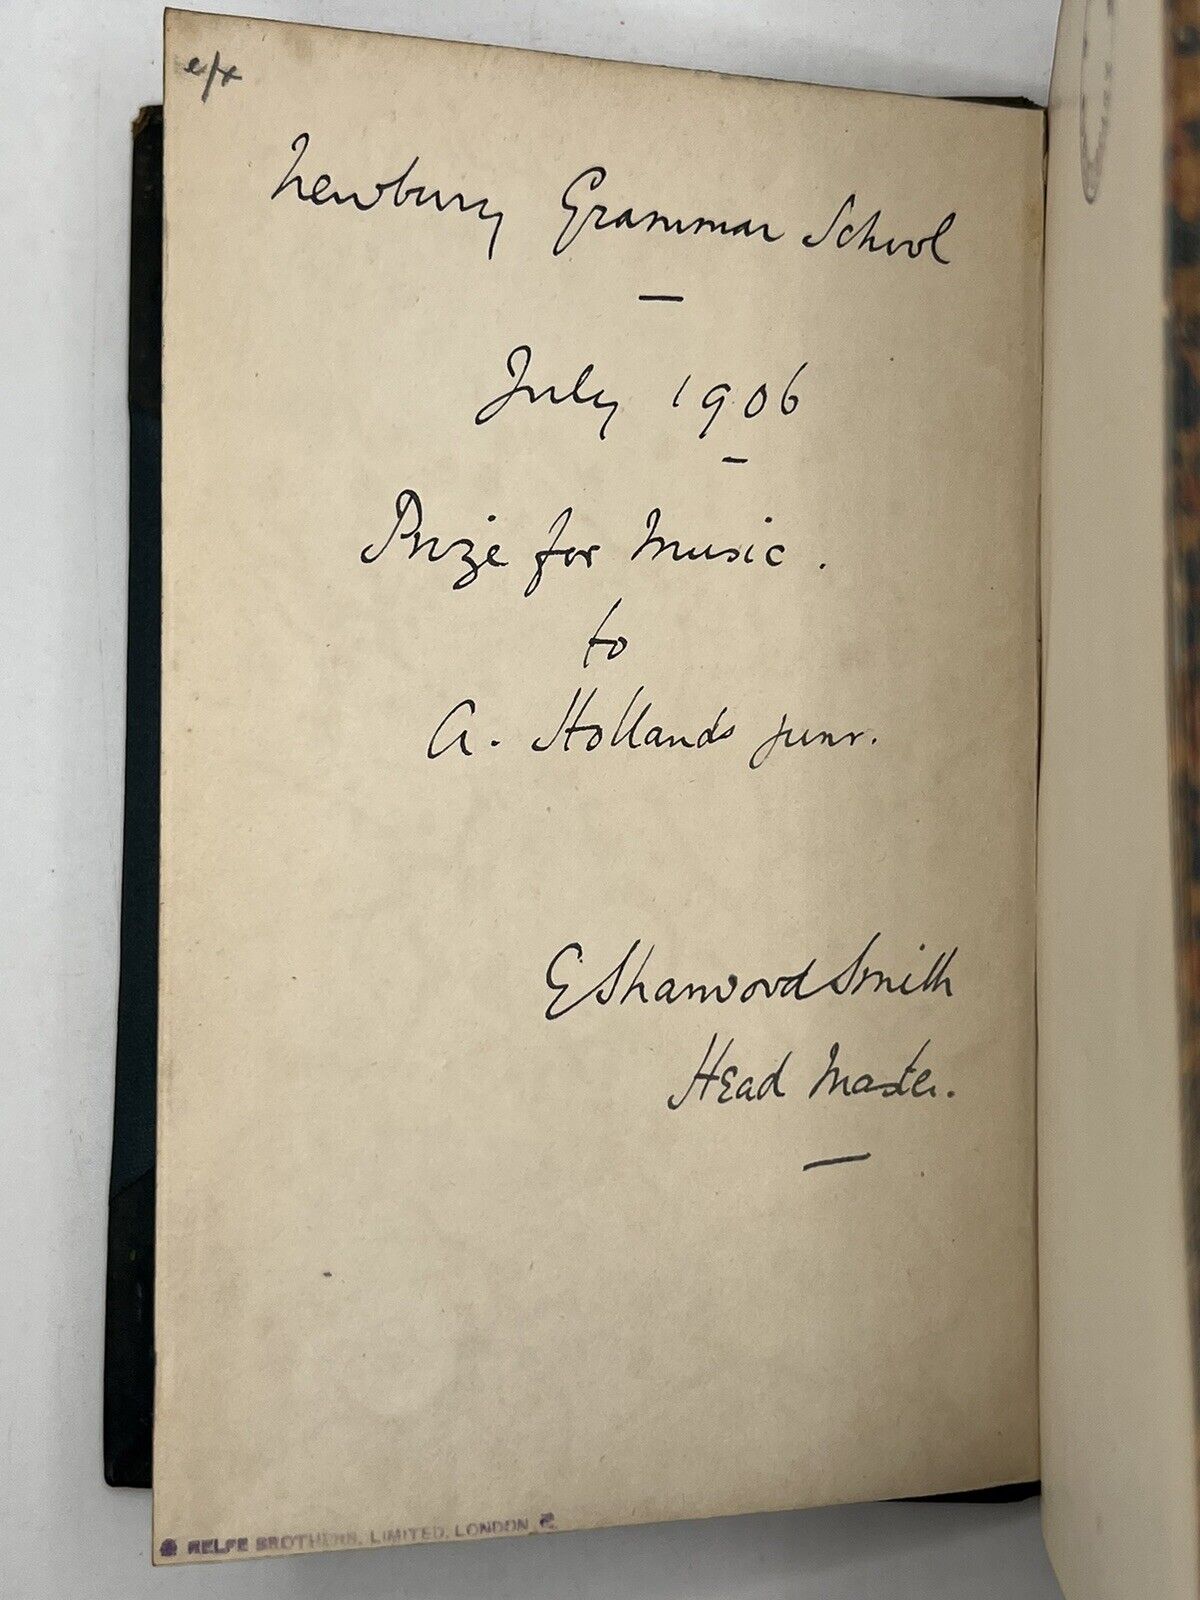 e/x
Newbury Grammar School
—
July 1906
—
Prize for Music.
to
A. Hollands junr.
E Sharwood Smith
Head Master.
—
RELFE BROTHERS, LIMITED, LONDON